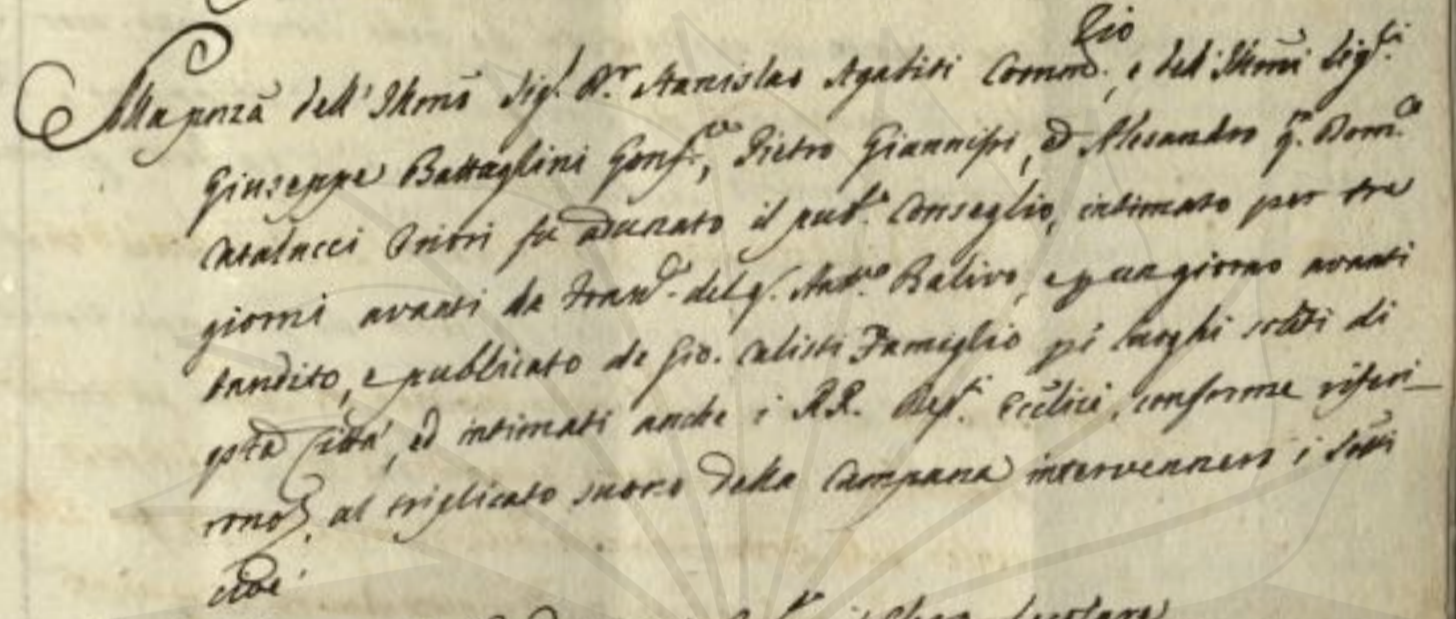 Alla pnza dell' Illmo Sig.r D.r Stanislao Agabiti Comm.rio, e dell' Illmi Sig.ri
Giuseppe Battaglini Gonf.re, Pietro Giannisi, ed Alesandro q.m Dom.co
Catalucci Priori fu adunato il pub.o Conseglio, intimato per tre
giorni avanti da Fran.co del q. Ant.o Balivo, e p un giorno avanti
bandito, e publicato da Gio. Calisti Famiglio pi luoghi soliti di
qsta Città, ed intimati anche i RR. Dep.ti Ecclici, conforme riferi-
rono, al triplicato suono della Campana intervennero i Sotti
cioè